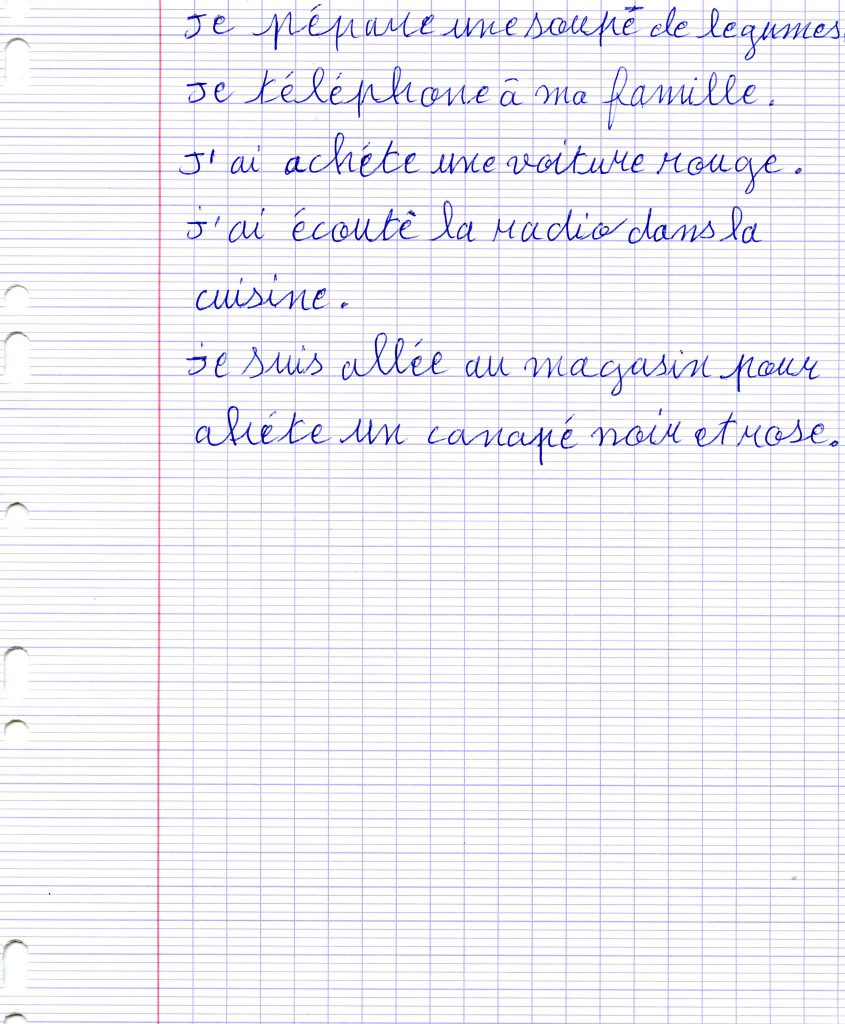 je pépare une soupé de legumes.
je téléphone à ma famille.
j'ai achéte une voiture rouge.
j'ai écouté la radio dans la
cuisine.
je suis allée au magasin pour
ahéte un canapé noir et rose.